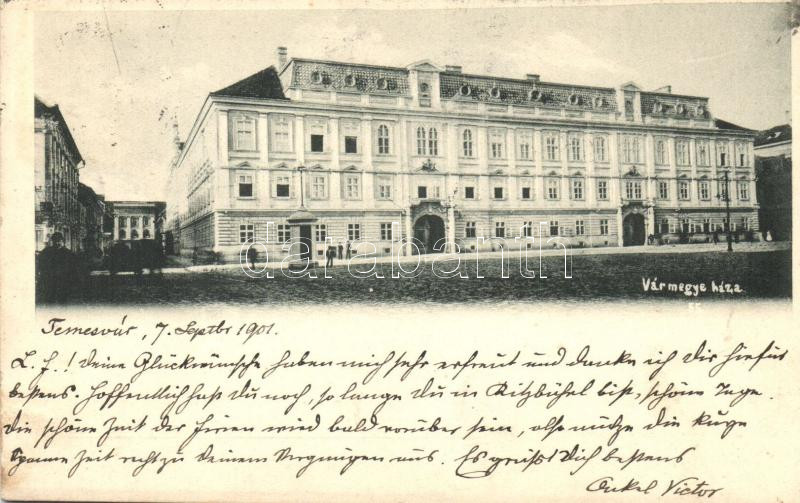 Vármegye háza
darabanth.com
Temesvár, 7. Septbr 1901.
L. f.! Deine Glückwünsche haben mich sehr erfreut und danke ich Dir hiefür
bestens. Hoffentlich hast Du noch, so lange Du in Kitzbühel bist, schöne Tage.
Die schöne Zeit der Ferien wird bald vorüber sein, also nütze die kurze
Spanne Zeit recht zu Deinem Vergnügen aus. Es grüßt Dich bestens
Onkel Victor